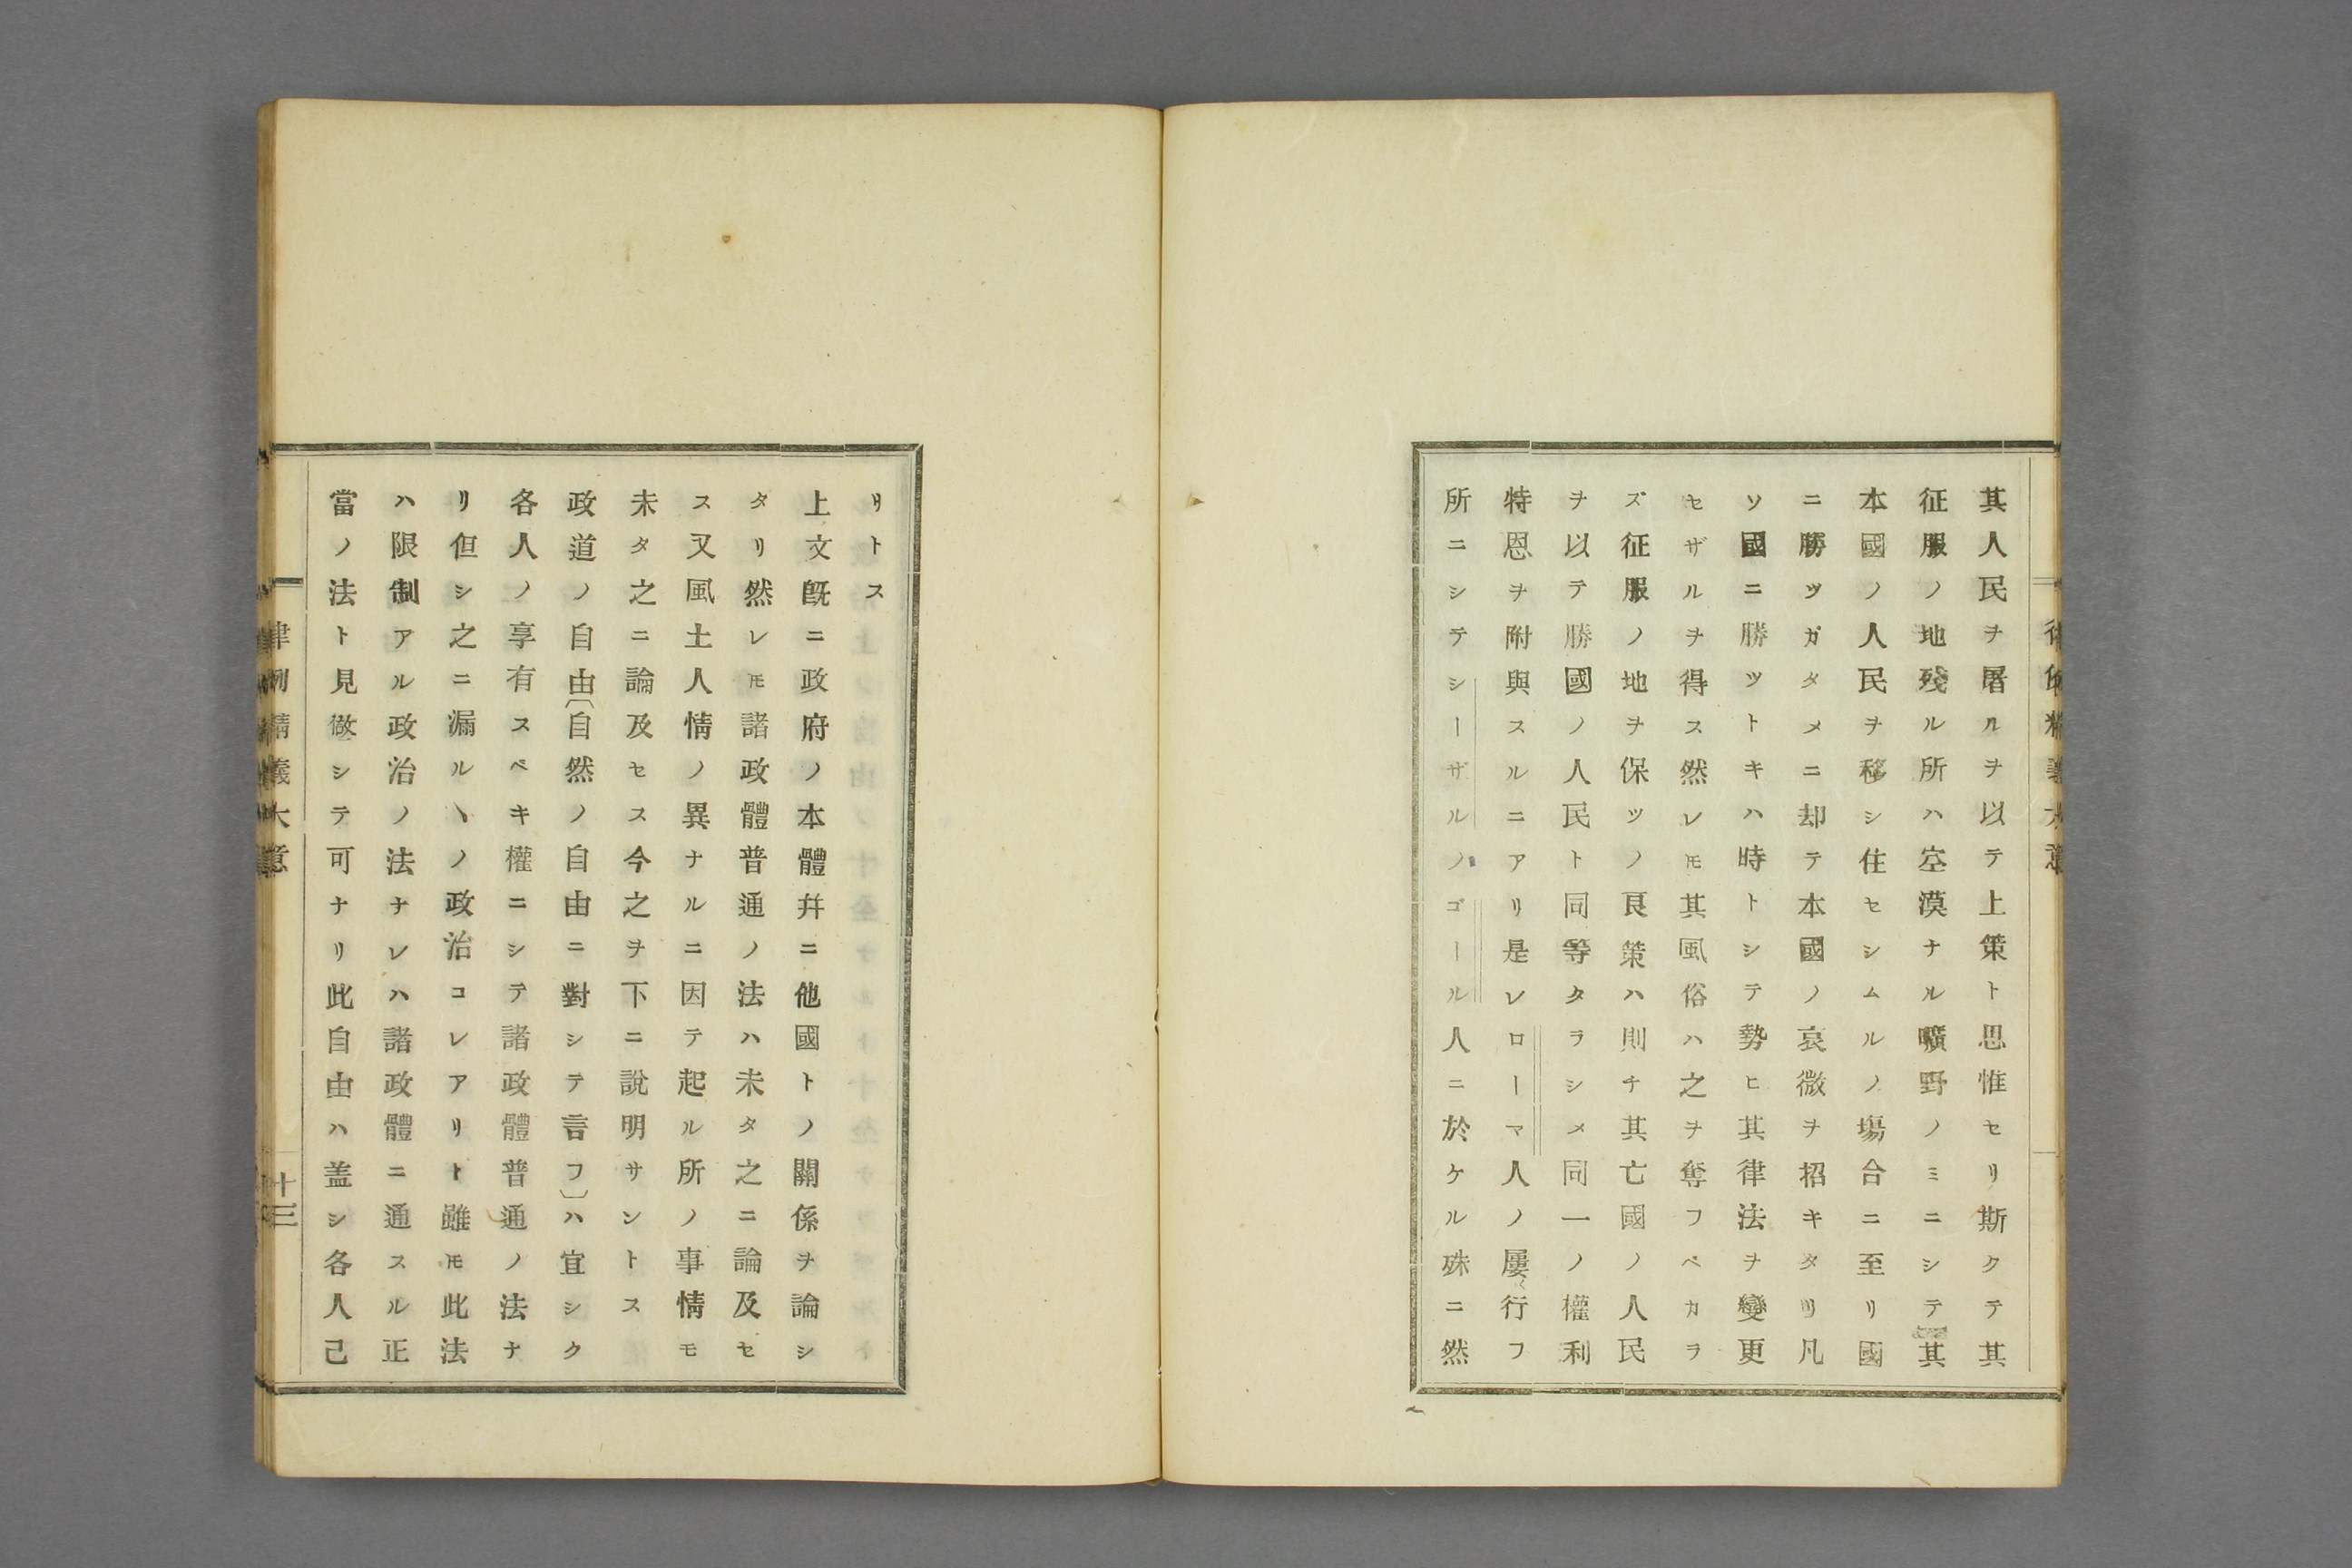 其人民ヲ屠ルヲ以テ上策ト思惟セリ斯クテ其
征服ノ地殘ル所ハ空漠ナル曠野ノミニシテ其
本國ノ人民ヲ移シ住セシムルノ塲合ニ至リ國
ニ勝ツガタメニ却テ本國ノ哀微ヲ招キタリ凡
ソ國ニ勝ツトキハ時トシテ勢ヒ其律法ヲ變更
セザルヲ得ス然レ𪜈其風俗ハ之ヲ奪フベカラ
ズ征服ノ地ヲ保ツノ良策ハ則チ其亡國ノ人民
ヲ以テ勝國ノ人民ト同等タラシメ同一ノ權利
特恩ヲ附與スルニアリ是レローマ人ノ屢〻行フ
所ニシテシーザルノゴール人ニ於ケル殊ニ然
リトス
上文既ニ政府ノ本體幷ニ他國トノ關係ヲ論シ
タリ然レ𪜈諸政體普通ノ法ハ未タ之ニ論及セ
ス又風土人情ノ異ナルニ因テ起ル所ノ事情モ
未タ之ニ論及セス今之ヲ下ニ說明サントス
政道ノ自由〔自然ノ自由ニ對シテ言フ〕ハ宜シク
各人ノ享有スベキ權ニシテ諸政體普通ノ法ナ
リ但シ之ニ漏ルヽノ政治コレアリト雖𪜈此法
ハ限制アル政治ノ法ナレハ諸政體ニ通スル正
當ノ法ト見做シテ可ナリ此自由ハ盖シ各人己
律例精義大意
十三